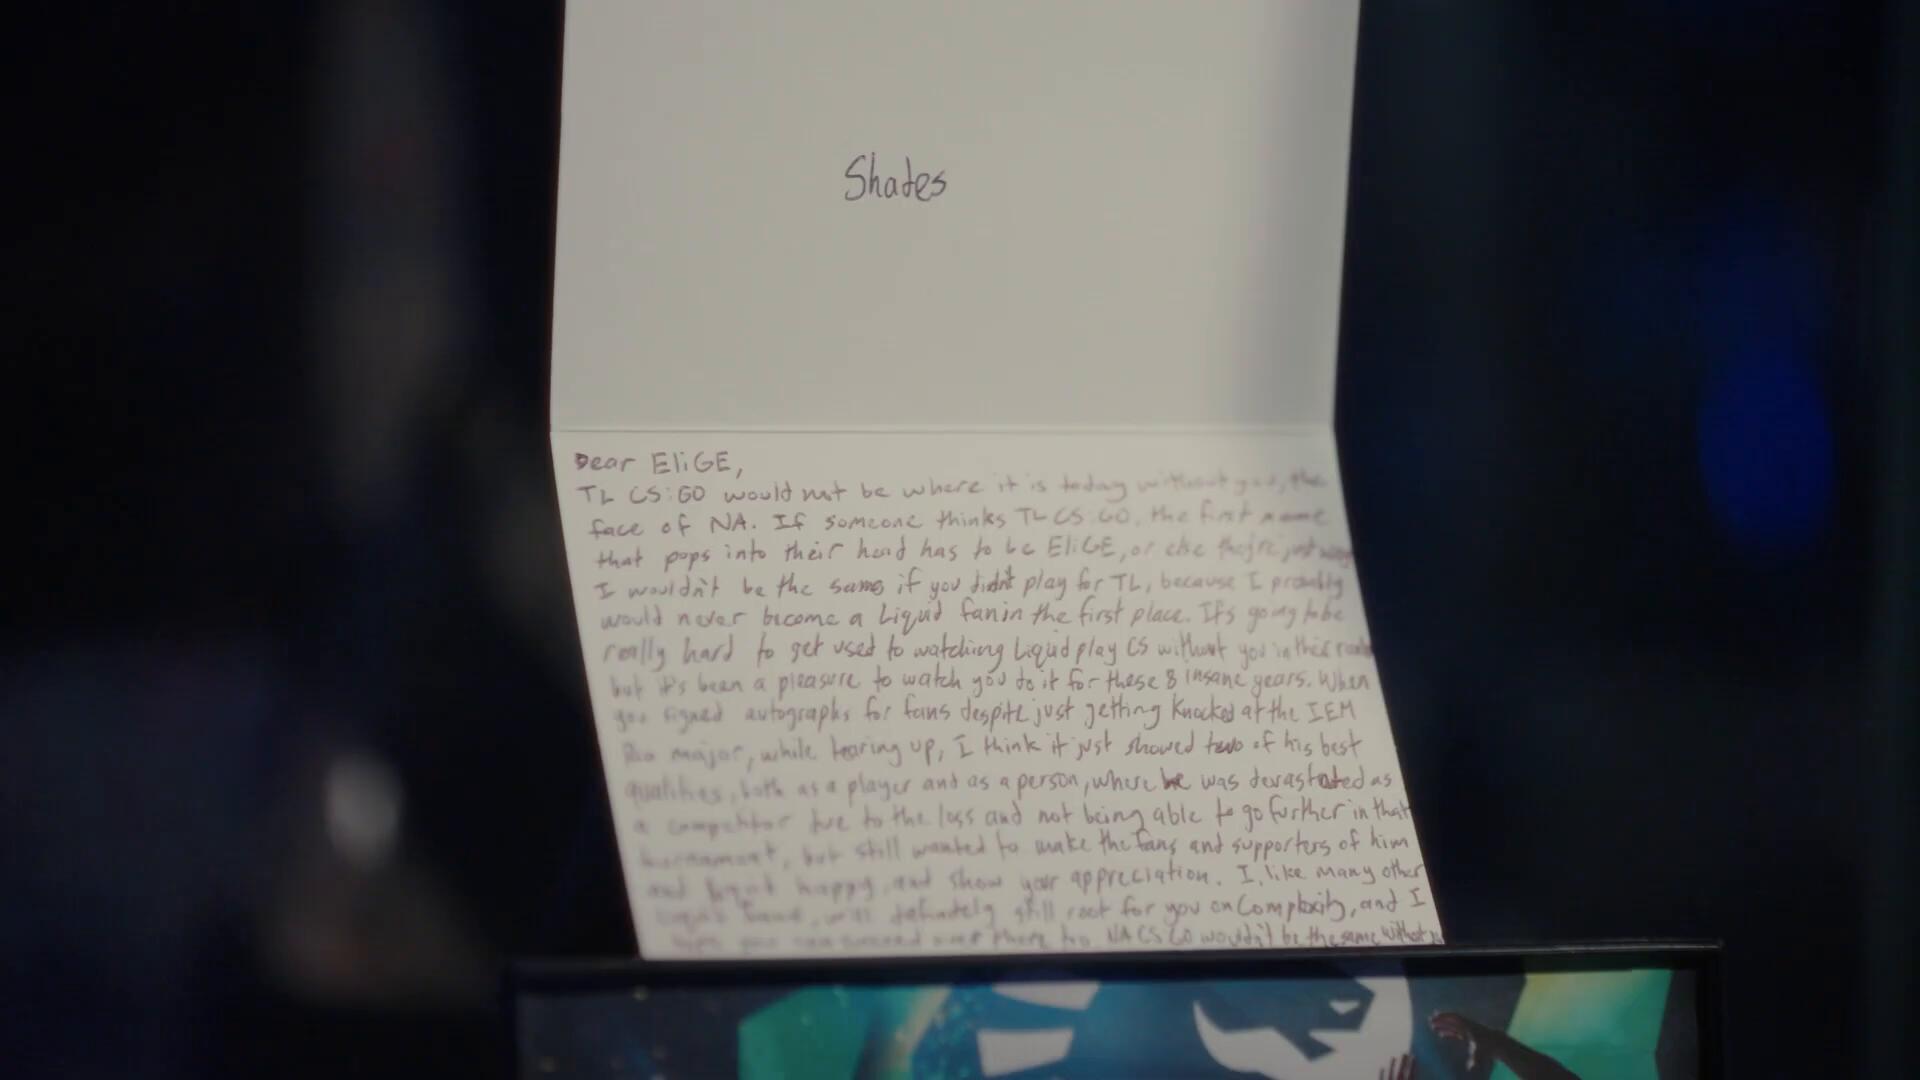 Shades
Dear EliGE,
TL CS:GO would not be where it is today without you, the
face of NA. If someone thinks TL CS:GO, the first name
that pops into their head has to be EliGE, or else they're just
I wouldn't be the same if you didn't play for TL, because I probably
would never become a Liquid fan in the first place. It's going to be
really hard to get used to watching Liquid play CS without you in their
but it's been a pleasure to watch you do it for these 8 insane years. When
you signed autographs for fans despite just getting knocked at the IEM
Rio major, while tearing up, I think it just showed two of his best
qualities, both as a player and as a person, where he was devastated as
a competitor due to the loss and not being able to go further in that
tournament, but still wanted to make the fans and supporters of him
and liquid happy, and show your appreciation. I, like many other
will definately still root for you on Complexity, and I
over there too. NA CS:GO wouldn't be the same without